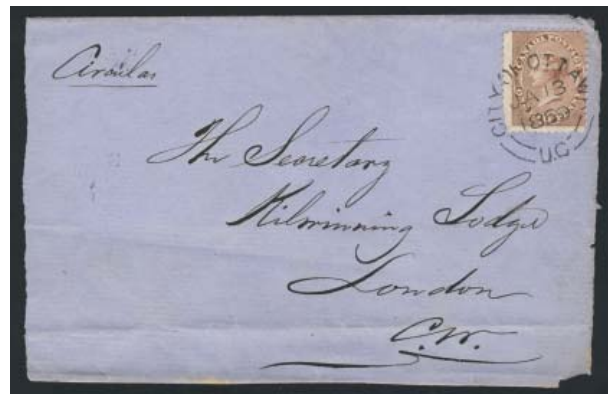 Circular
CANADA POSTAGE
CITY OF OTTAWA
JA 13
1869
U.C
The Secretary
Kilwinning Lodge
London
C.W.